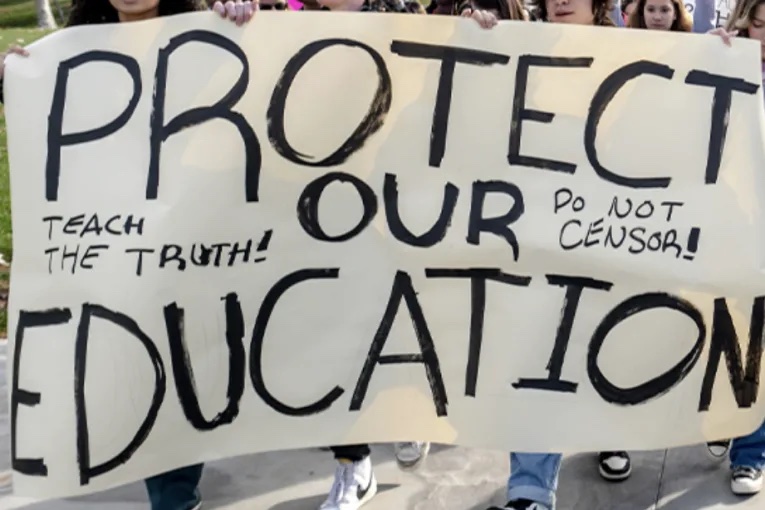 PROTECT
OUR
TEACH
THE TRUTH!
DO NOT
CENSOR!
EDUCATION